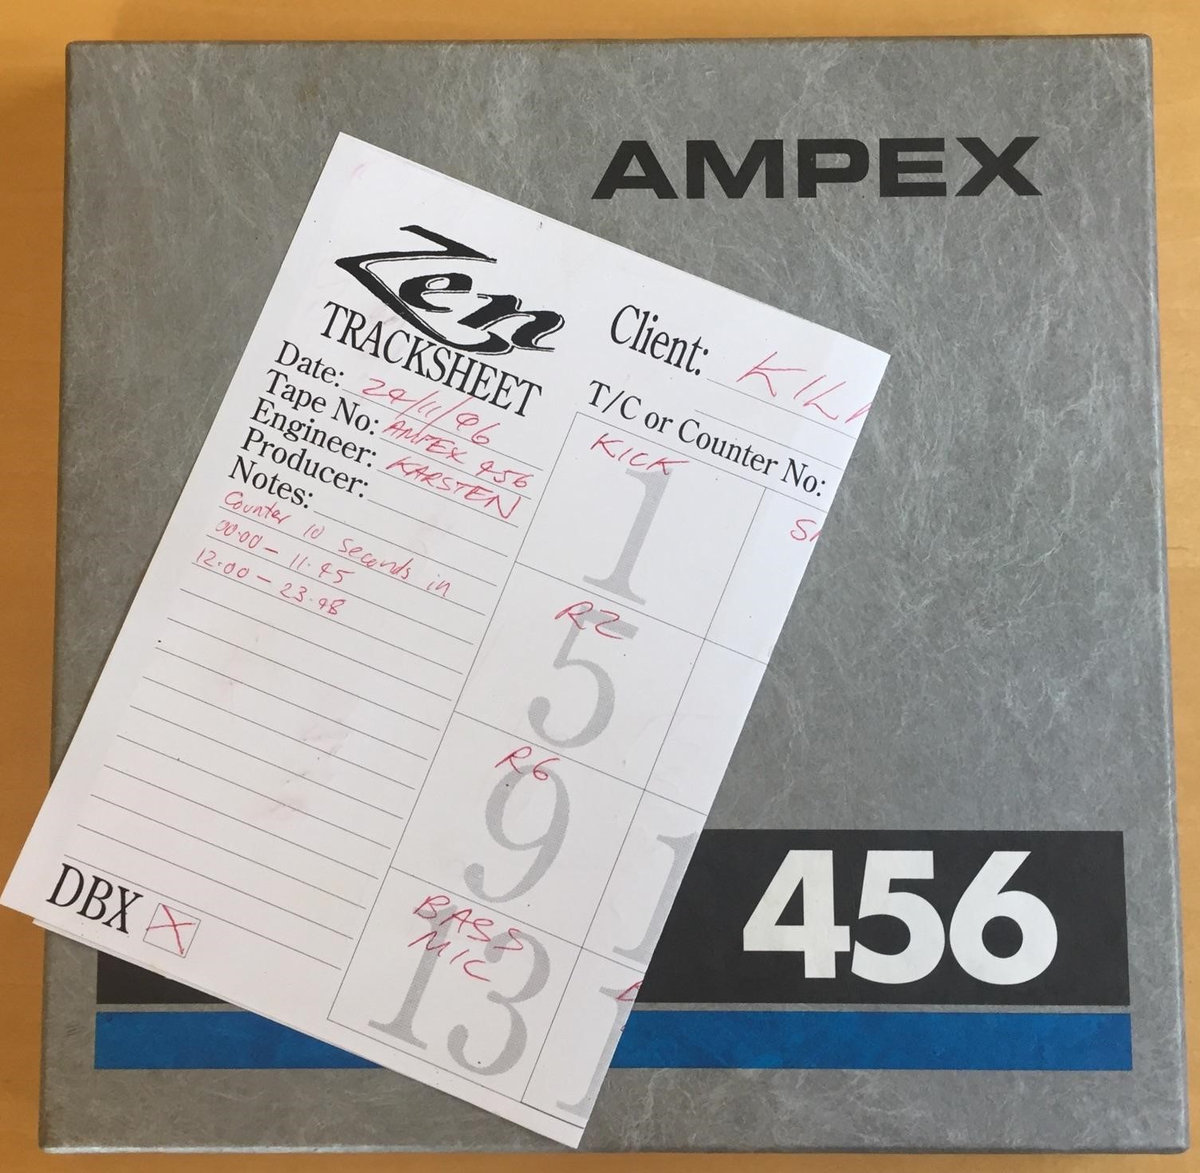 AMPEX
Zen
TRACKSHEET
Date: 24/11/96
Tape No: AMPEX 456
Engineer: KARSTEN
Producer:
Notes:
Counter 10 seconds in
00.00 - 11.45
12.00 - 23.48
DBX X
Client:
T/C or Counter No:
KICK
1
R2
5
R6
9
BASS
MIC
13
456